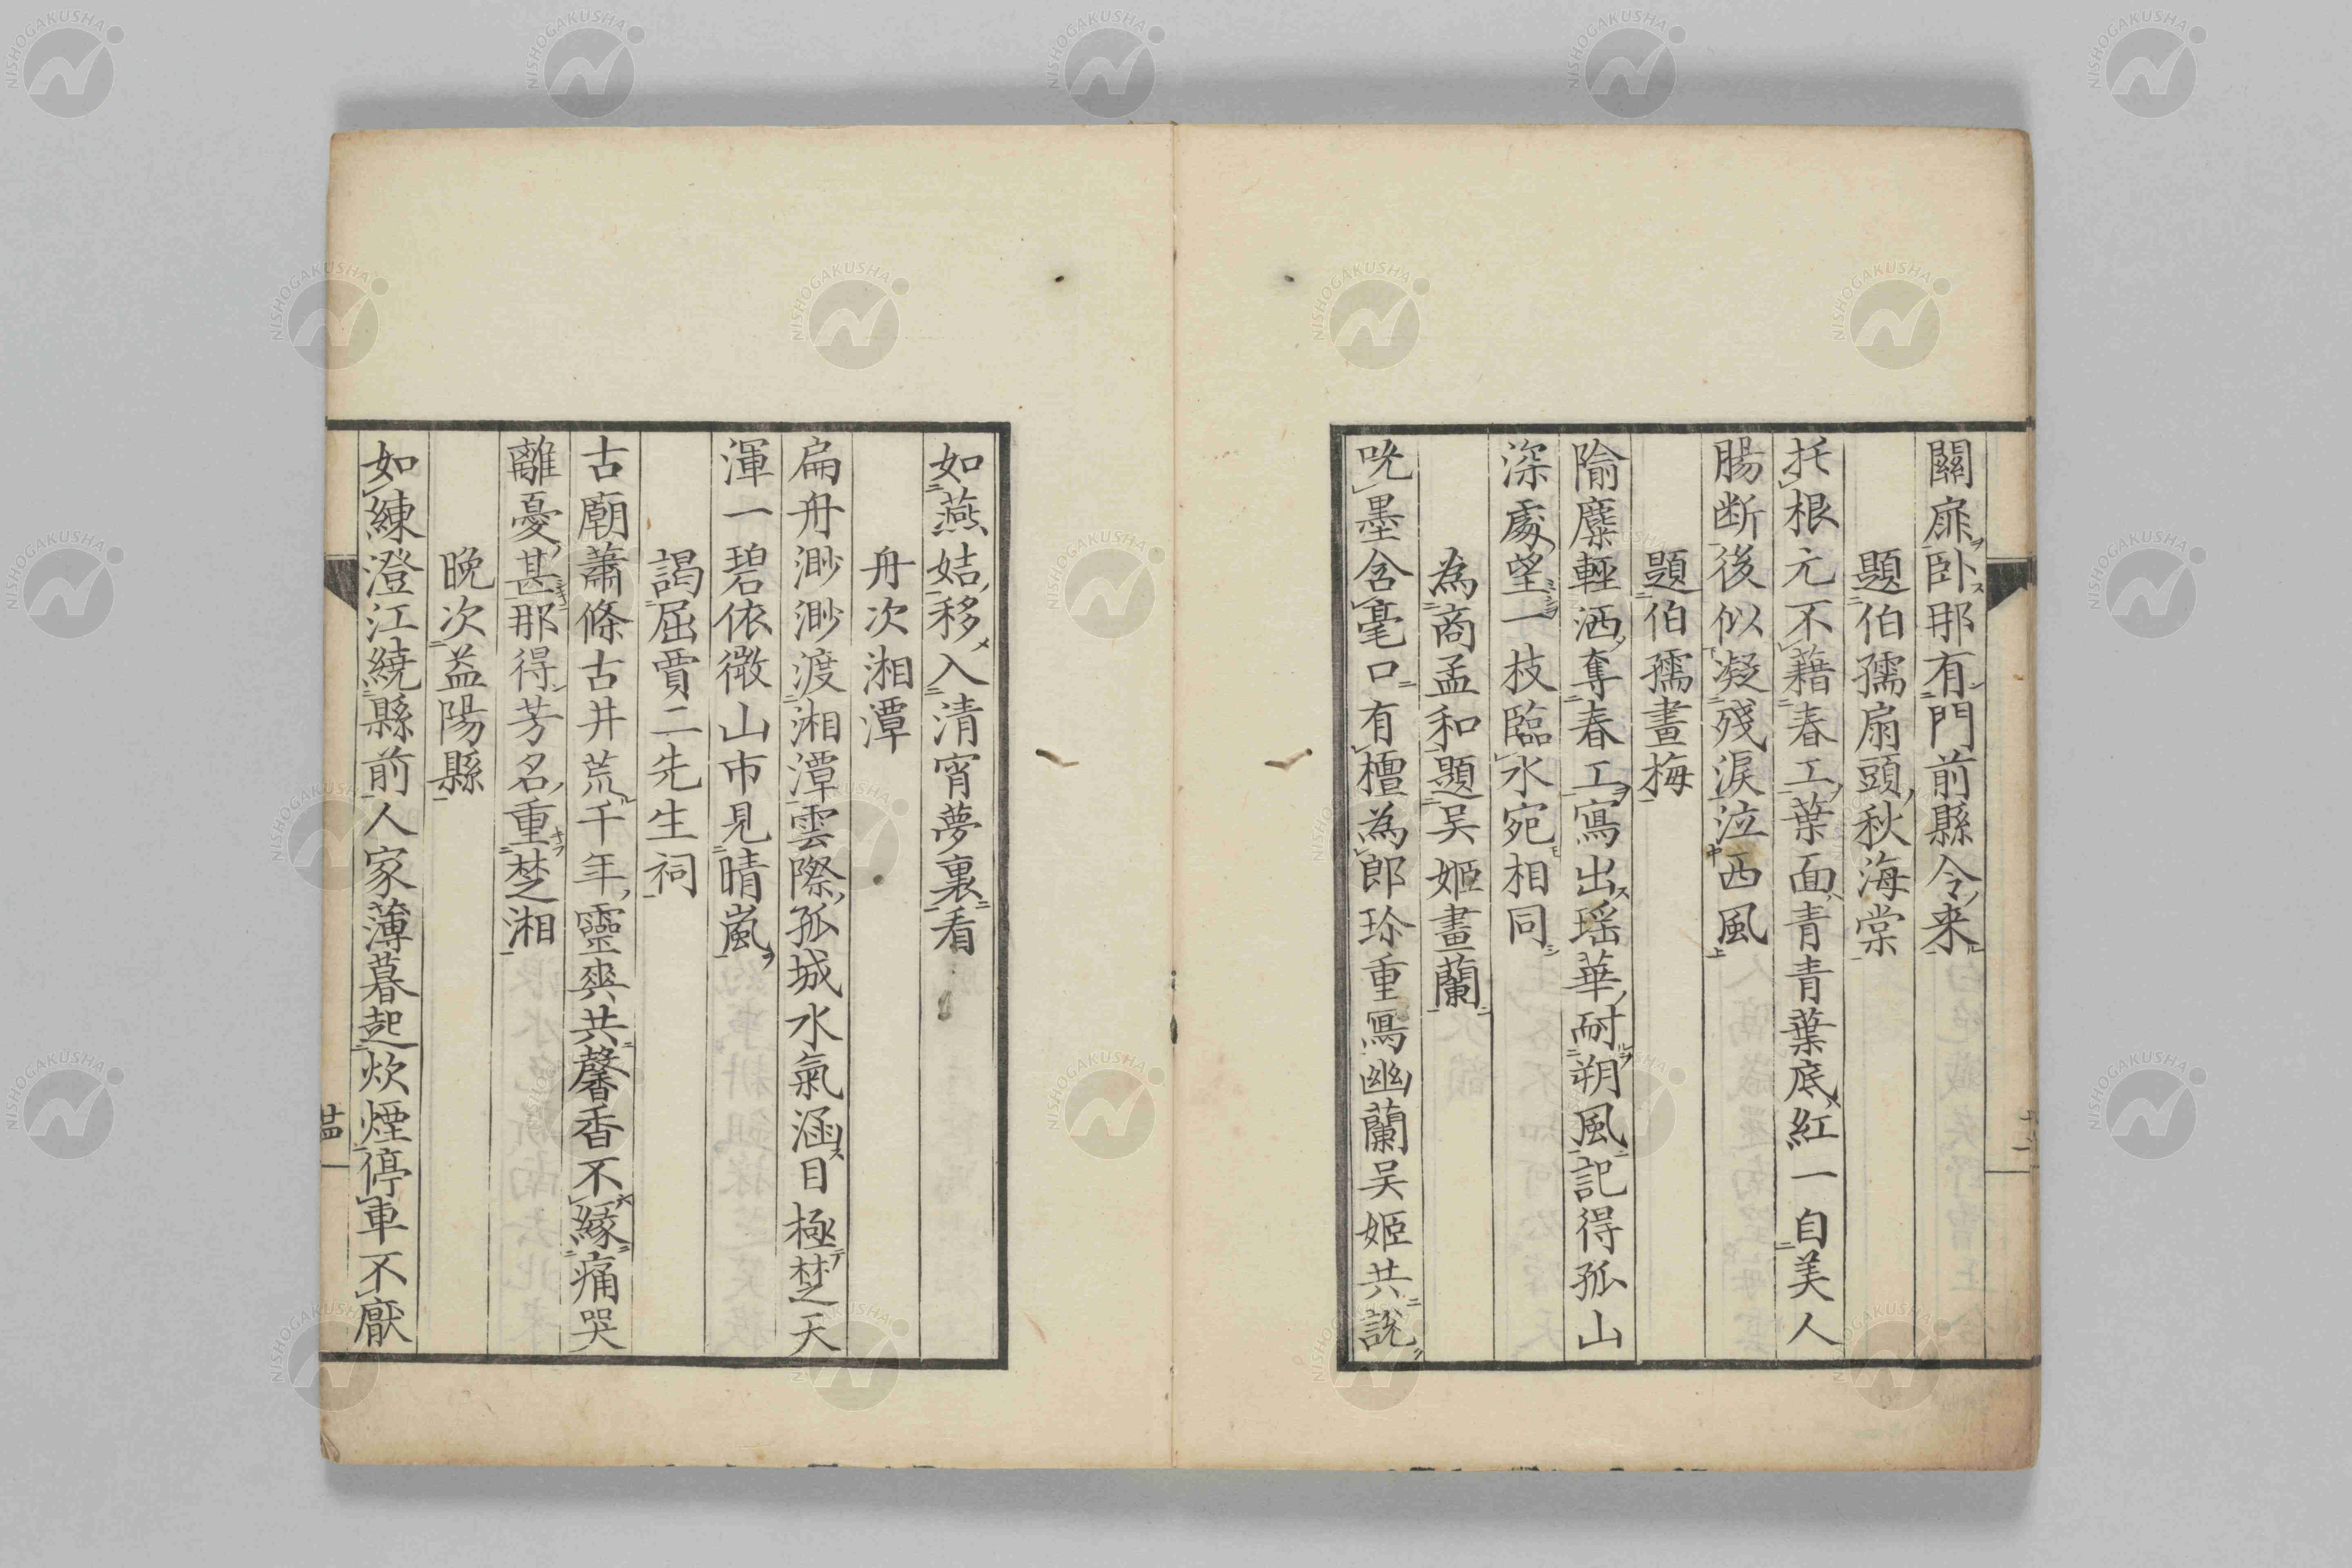 關扉臥那有門前縣令来
題伯孺扇頭秋海棠
托根元不藉春工葉面青青葉底紅一自美人
腸断後似凝殘淚泣西風
題伯孺畫梅
隃麋輕洒奪春工寫出瑶華耐朔風記得孤山
深處望一枝臨水宛相同
為商孟和題吴姬畫蘭
吮墨含毫口有檀為郎珍重寫幽蘭吴姬共說
如燕姞移入清宵夢裏看
舟次湘潭
扁舟渺渺渡湘潭雲際孤城水氣涵目極楚天
渾一碧依微山市見晴嵐
謁屈賈二先生祠
古廟蕭條古井荒千年靈爽共馨香不緣痛哭
離憂甚那得芳名重楚湘
晚次益陽縣
如練澄江繞縣前人家薄暮起炊煙停車不厭